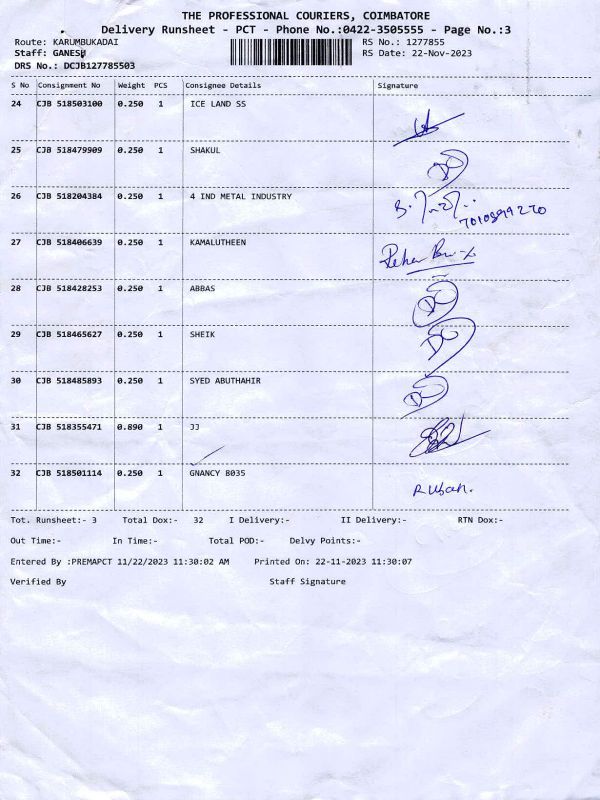 THE PROFESSIONAL COURIERS, COIMBATORE
Delivery Runsheet - PCT - Phone No.:0422-3505555 - Page No.:3
Route: KARUMBUKADAI RS No.: 1277855
Staff: GANESH RS Date: 22-Nov-2023
DRS No.: DCJB127785503
S No Consignment No Weight PCS Consignee Details Signature
24 CJB 518503100 0.250 1 ICE LAND SS
25 CJB 518479909 0.250 1 SHAKUL
26 CJB 518204384 0.250 1 4 IND METAL INDUSTRY
27 CJB 518406639 0.250 1 KAMALUTHEEN
28 CJB 518428253 0.250 1 ABBAS
29 CJB 518465627 0.250 1 SHEIK
30 CJB 518485893 0.250 1 SYED ABUTHAHIR
31 CJB 518355471 0.890 1 JJ
32 CJB 518501114 0.250 1 GNANCY 8035
Tot. Runsheet:- 3 Total Dox:- 32 I Delivery:- II Delivery:- RTN Dox:-
Out Time:- In Time:- Total POD:- Delvy Points:-
Entered By :PREMAPCT 11/22/2023 11:30:02 AM Printed On: 22-11-2023 11:30:07
Verified By Staff Signature